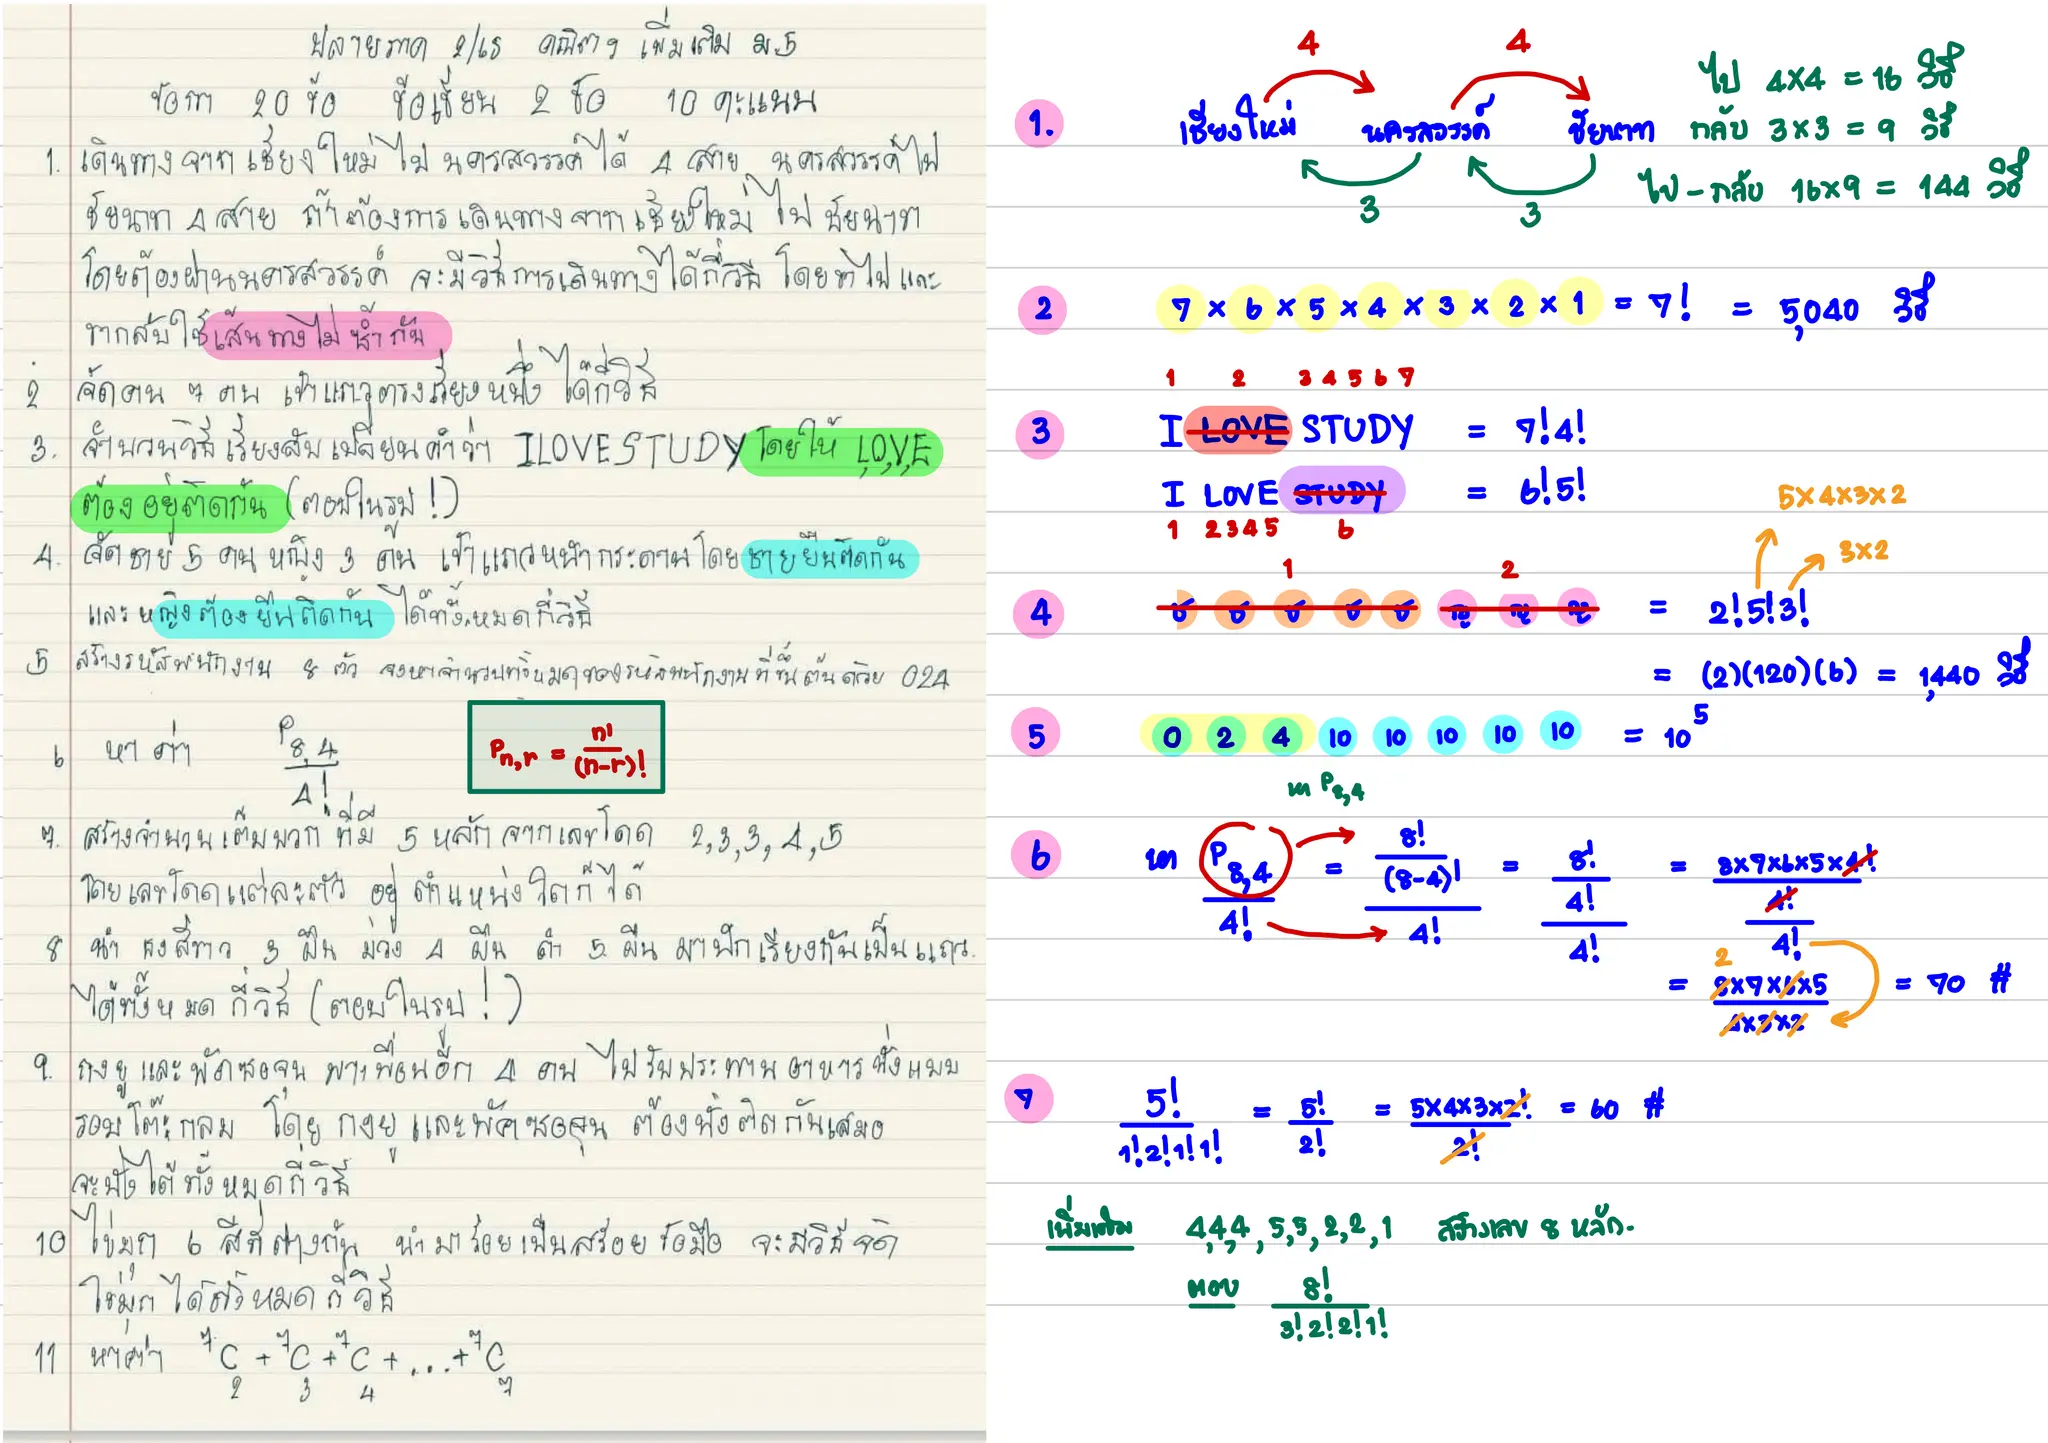 ปลายภาค 2/65 คณิตฯ เพิ่มเติม ม.5
ข้อกา 20 ข้อ ข้อเขียน 2 ข้อ 10 คะแนน
1. เดินทางจากเชียงใหม่ไปนครสวรรค์ได้ 4 สาย นครสวรรค์ไป
ชัยนาท 4 สาย ถ้าต้องการเดินทางจากเชียงใหม่ไปชัยนาท
โดยต้องผ่านนครสวรรค์ จะมีวิธีการเดินทางได้กี่วิธี โดยขาไปและ
ขากลับใช้เส้นทางไม่ซ้ำกัน
2 จัดคน 7 คน เข้าแถวตรงเรียงหนึ่ง ได้กี่วิธี
3. จำนวนวิธีเรียงสับเปลี่ยนคำว่า ILOVESTUDY โดยให้ L,O,V,E
ต้องอยู่ติดกัน (ตอบในรูป !)
4. จัดชาย 5 คน หญิง 3 คน เข้าแถวหน้ากระดานโดยชายยืนติดกัน
และหญิงต้องยืนติดกัน ได้ทั้งหมดกี่วิธี
5 สร้างรหัสพนักงาน 8 ตัว จงหาจำนวนทั้งหมดของรหัสพนักงานที่ขึ้นต้นด้วย 024
6 หาค่า P8,4 / 4!
Pn,r = n! / (n-r)!
7. สร้างจำนวนเต็มบวก ที่มี 5 หลัก จากเลขโดด 2,3,3,4,5
โดยเลขโดดแต่ละตัว อยู่ตำแหน่งใดก็ได้
8 นำธงสีขาว 3 ผืน ม่วง 4 ผืน ดำ 5 ผืน มาปักเรียงกันเป็นแถว
ได้ทั้งหมดกี่วิธี (ตอบในรูป !)
9. กงยู และพัคซอจุน พาเพื่อนอีก 4 คน ไปรับประทานอาหารนั่งแบบ
รอบโต๊ะกลม โดย กงยู และพัคซอจุน ต้องนั่งติดกันเสมอ
จะนั่งได้ทั้งหมดกี่วิธี
10 ไข่มุก 6 สีที่ต่างกัน นำมาร้อยเป็นสร้อยข้อมือ จะมีวิธีจัด
ไข่มุกได้ทั้งหมดกี่วิธี
11 หาค่า 7C2 + 7C3 + 7C4 + ... + 7C7
4 4
1. เชียงใหม่ นครสวรรค์ ชัยนาท
3 3
ไป 4x4 = 16 วิธี
กลับ 3x3 = 9 วิธี
ไป - กลับ 16x9 = 144 วิธี
2 7 x 6 x 5 x 4 x 3 x 2 x 1 = 7! = 5,040 วิธี
1 2 3 4 5 6 7
3 I LOVE STUDY = 7!4!
I LOVE STUDY = 6!5!
1 2 3 4 5 6
5x4x3x2
3x2
1 2
4 ช ช ช ช ช ญ ญ ญ = 2!5!3!
= (2)(120)(6) = 1,440 วิธี
5 0 2 4 10 10 10 10 10 = 10^5
หา P8,4
6 หา P8,4 / 4! = 8! / (8-4)! / 4! = 8! / 4! / 4! = 8x7x6x5x4! / 4! / 4!
2
= 8x7x6x5 / 4x3x2 = 70 #
7 5! / 1!2!1!1! = 5! / 2! = 5x4x3x2! / 2! = 60 #
เพิ่มเติม 4,4,4,5,5,2,2,1 สร้างเลข 8 หลัก.
ตอบ 8! / 3!2!2!1!